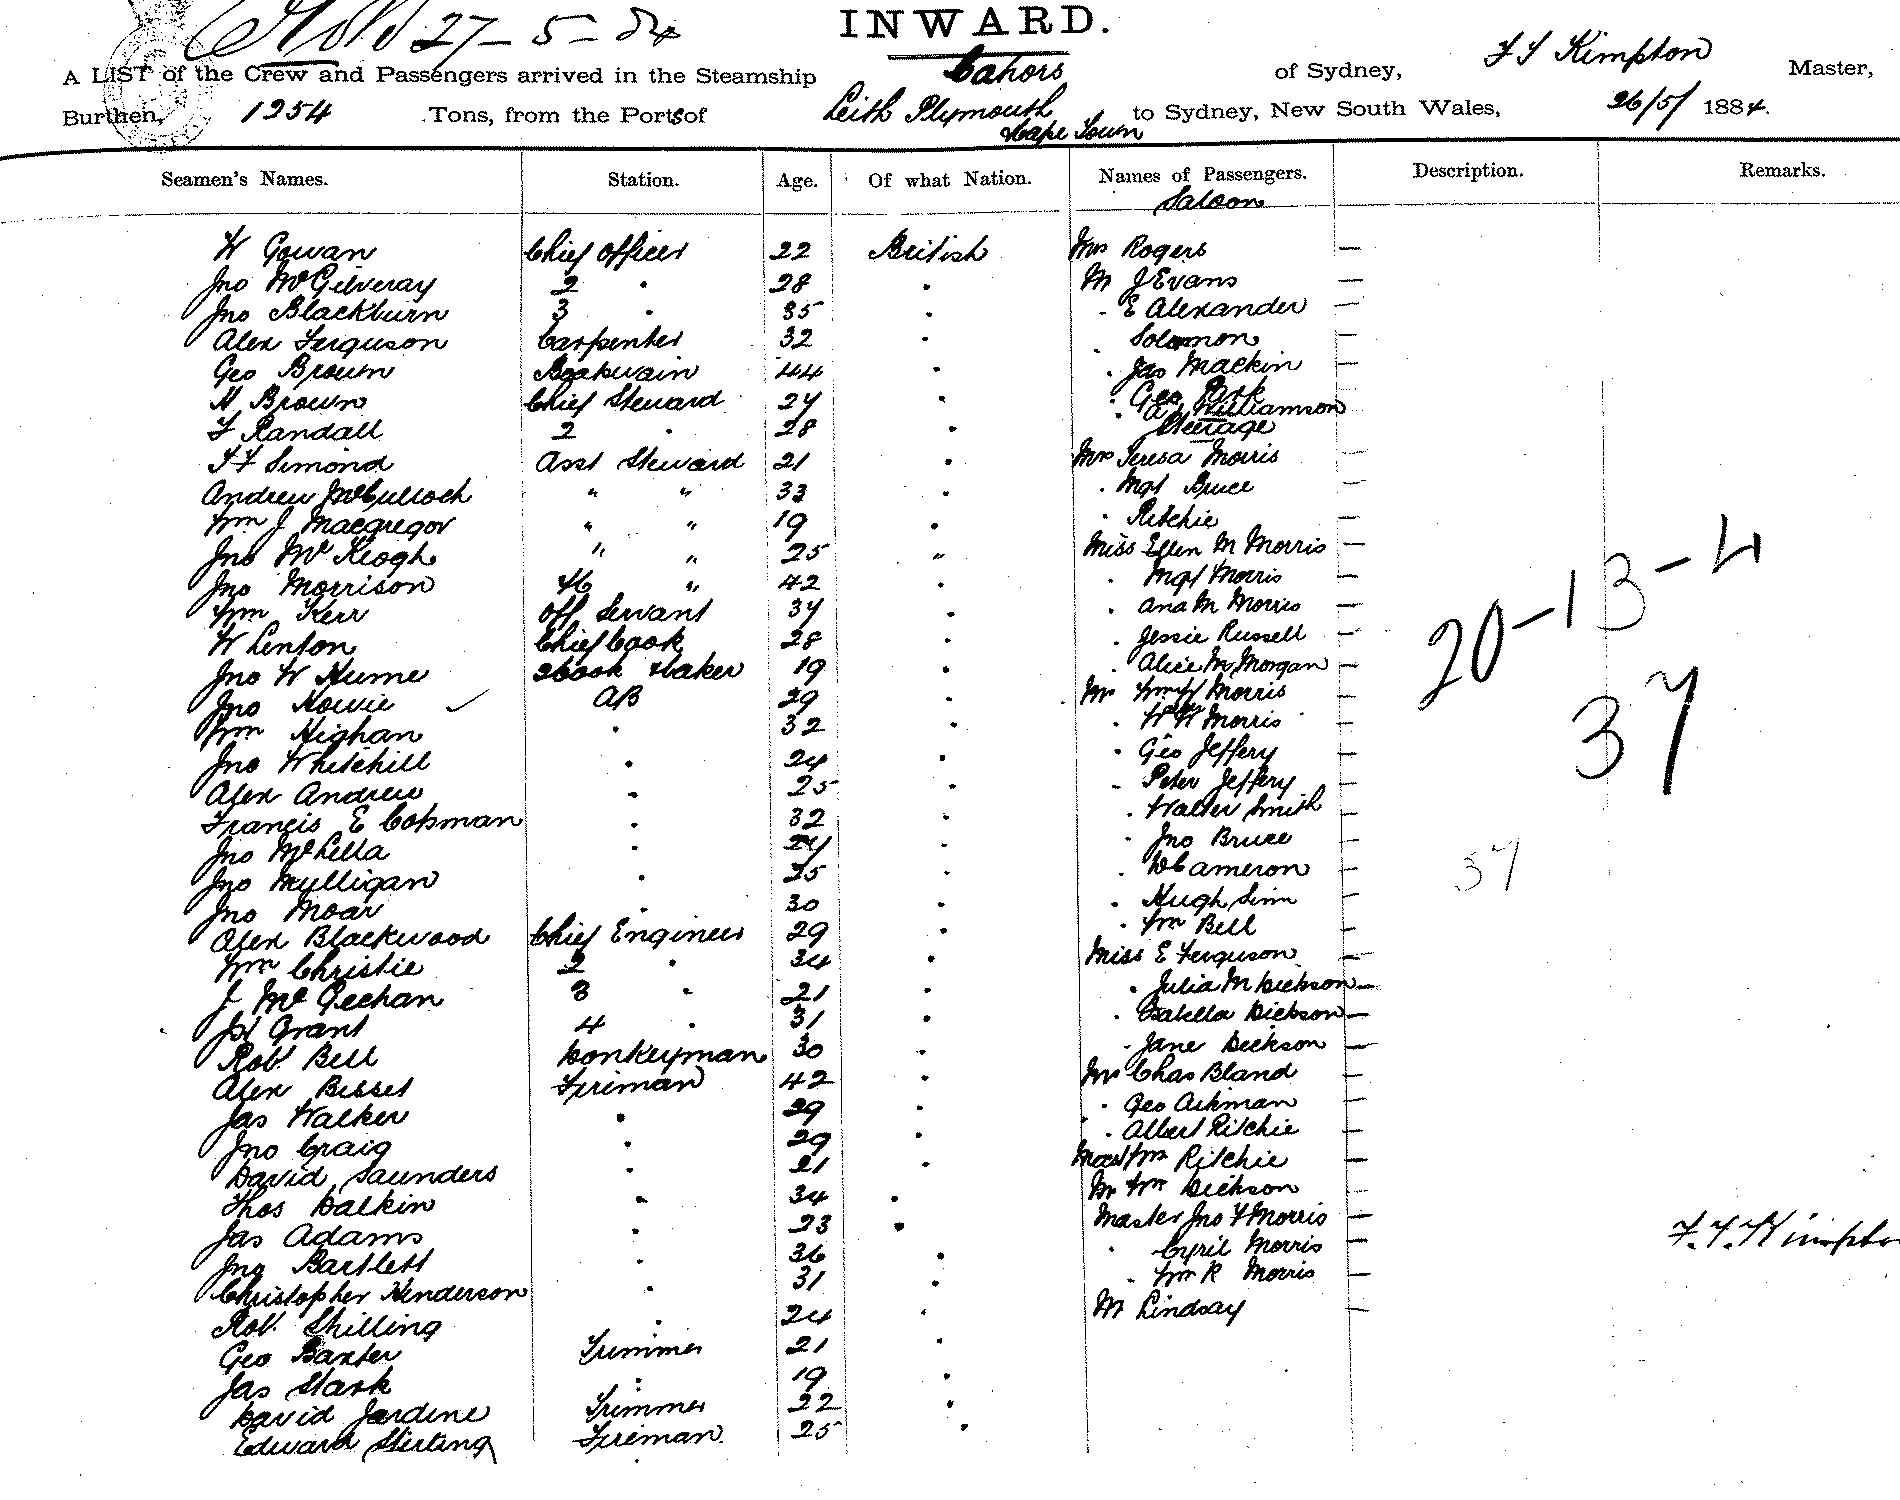 27-5-84
INWARD.
A LIST of the Crew and Passengers arrived in the Steamship Cahors of Sydney, F S Kimpton Master,
Burthen, 1254 Tons, from the Ports of Leith Plymouth Cape Town to Sydney, New South Wales, 26/5/ 1884.
Seamen's Names. Station. Age. Of what Nation. Names of Passengers. Description. Remarks.
Saloon
W Gowan Chief Officer 22 British Mrs Rogers —
Jno McGilveray 2 " 28 " Mr J Evans —
Jno Blackburn 3 " 35 " " E Alexander —
Alex Ferguson Carpenter 32 " " Solomon —
Geo Brown Boatswain 44 " " Jas Mackin —
H Brown Chief Steward 24 " " Geo Park
" Williamson
F Randall 2 " 28 " Steerage
Simond Asst Steward 21 " Mrs Teresa Morris —
Andrew McCulloch " " 33 " " Mgt Bruce —
Wm J Macgregor " " 19 " " Ritchie —
Jno McKeogh " " 25 " Miss Ellen M Morris —
Jno Morrison " 42 " " Mgt Morris —
Wm Kerr Off Servant 34 " " Ana M Morris —
W Lenton Chief Cook 28 " " Jessie Russell —
Jno W Hume 2 Cook & Baker 19 " " Alice M Morgan —
Jno Howie AB 29 " Mr Wm Morris —
Wm Highan " 32 " " W W Morris —
Jno Whitehill " 24 " " Geo Jeffery —
Alex Andrew " 25 " " Peter Jeffery —
Francis E Copman " 32 " " Walter Smith —
Jno McLella " " " Jno Bruce —
Jno Mylligan " 25 " " D Cameron —
Jno Moar " 30 " " Hugh Sinn —
Alex Blackwood Chief Engineer 29 " " Wm Bell —
Wm Christie 2 " 34 " Miss E Ferguson —
J McGeehan 3 " 21 " " Julia M Dickson —
Grant 4 " 31 " " Isabella Dickson —
Robt Bell Donkeyman 30 " " Jane Dickson —
Alex Bisset Fireman 42 " Mr Chas Bland —
Jas Walker " 29 " " Geo Aikman —
Jno Craig " 29 " " Albert Ritchie —
David Saunders " 21 " Mast Wm Ritchie —
Thos Dalkin " 34 " Mr Wm Dickson —
Jas Adams " 23 " Master Jno F Morris —
Jno Bartlett " 36 " " Cyril Morris —
Christopher Henderson " 31 " " Wm R Morris —
Robt Shilling " 24 " Mr Lindsay —
Geo Baxter Trimmer 21 "
Jas Stark " 19 "
David Jardine Trimmer 22 "
Edward Stirling Fireman 25 "
20-13-4
37
37
F. S. Kimpton